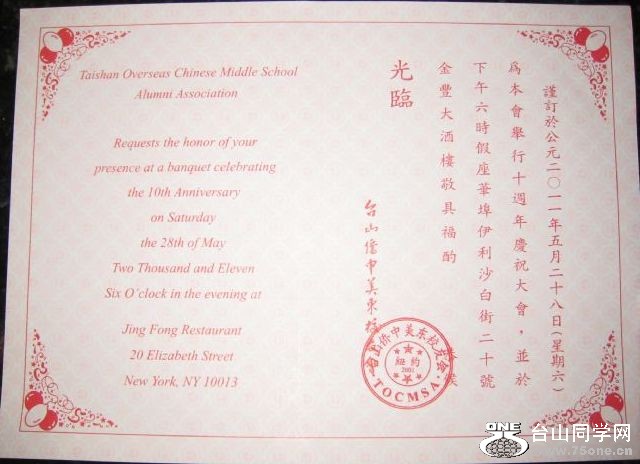 Taishan Overseas Chinese Middle School
Alumni Association
Requests the honor of your
presence at a banquet celebrating
the 10th Anniversary
on Saturday
the 28th of May
Two Thousand and Eleven
Six O´clock in the evening at
Jing Fong Restaurant
20 Elizabeth Street
New York, NY 10013
謹訂於公元二〇一一年五月二十八日(星期六)
為本會舉行十週年慶祝大會，並於
下午六時假座華埠伊利沙白街二十號
金豐大酒樓敬具福酌
光臨
台山僑中美東校
台山侨中美东校友会
紐約
2001
TOCMSA
ONE
台山同学网
www.75one.cn